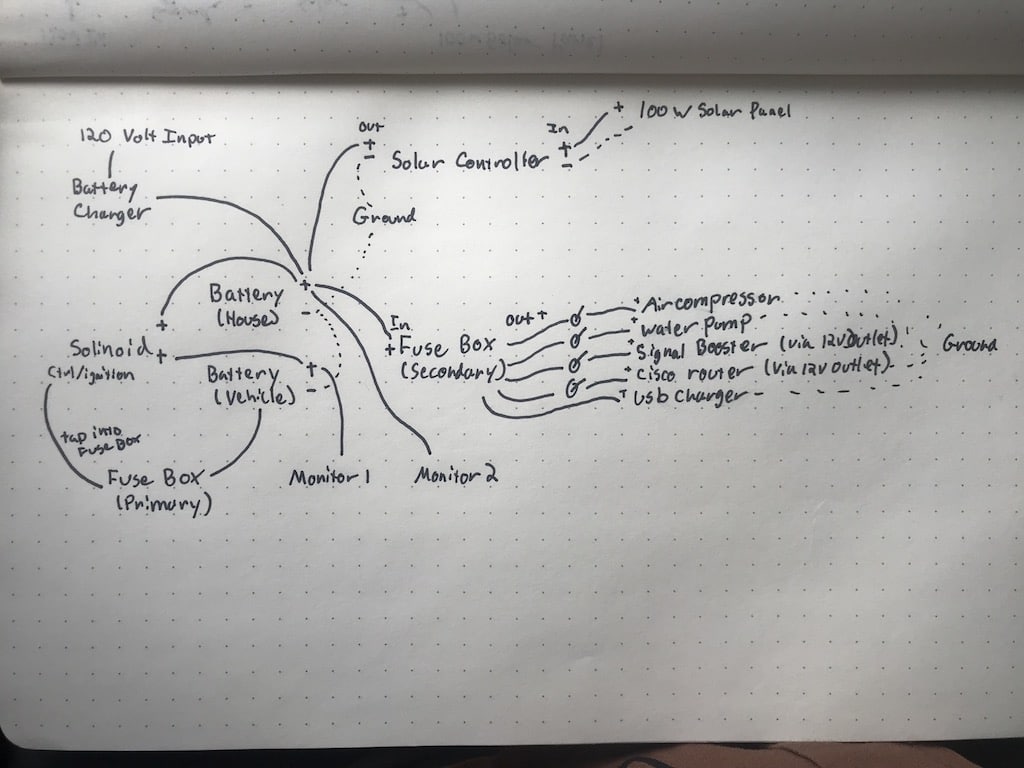 120 Volt Input
Battery
Charger
out
+
-
Solar Controller
In
+
-
+
100 W Solar Panel
Ground
+
Battery
(House)
-
+
Solinoid
+
Ctrl/ignition
Battery
(Vehicle)
+
-
tap into
Fuse Box
Fuse Box
(Primary)
Monitor 1
Monitor 2
In
+
Fuse Box
(Secondary)
out +
+ Aircompressor
+ water pump
+ Signal Booster (via 12v outlet)
+ Cisco router (via 12v outlet)
+ usb charger
Ground